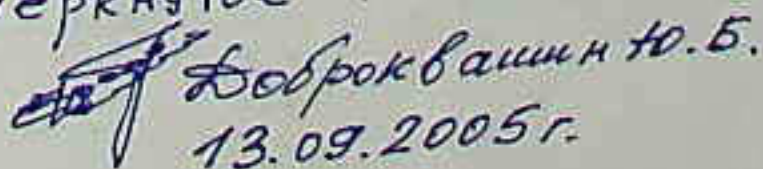 Доброквашин Ю.Б.
13.09.2005г.